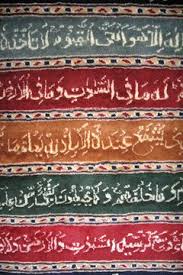 له الا هو الحي القيوم لا تاخذ
له ما في السموات وما في الارض
يشفع عنده الا باذنه يعلم ما
وما خلفهم ولا يحيطون بشئ من
كرسيه السموات والارض ولا